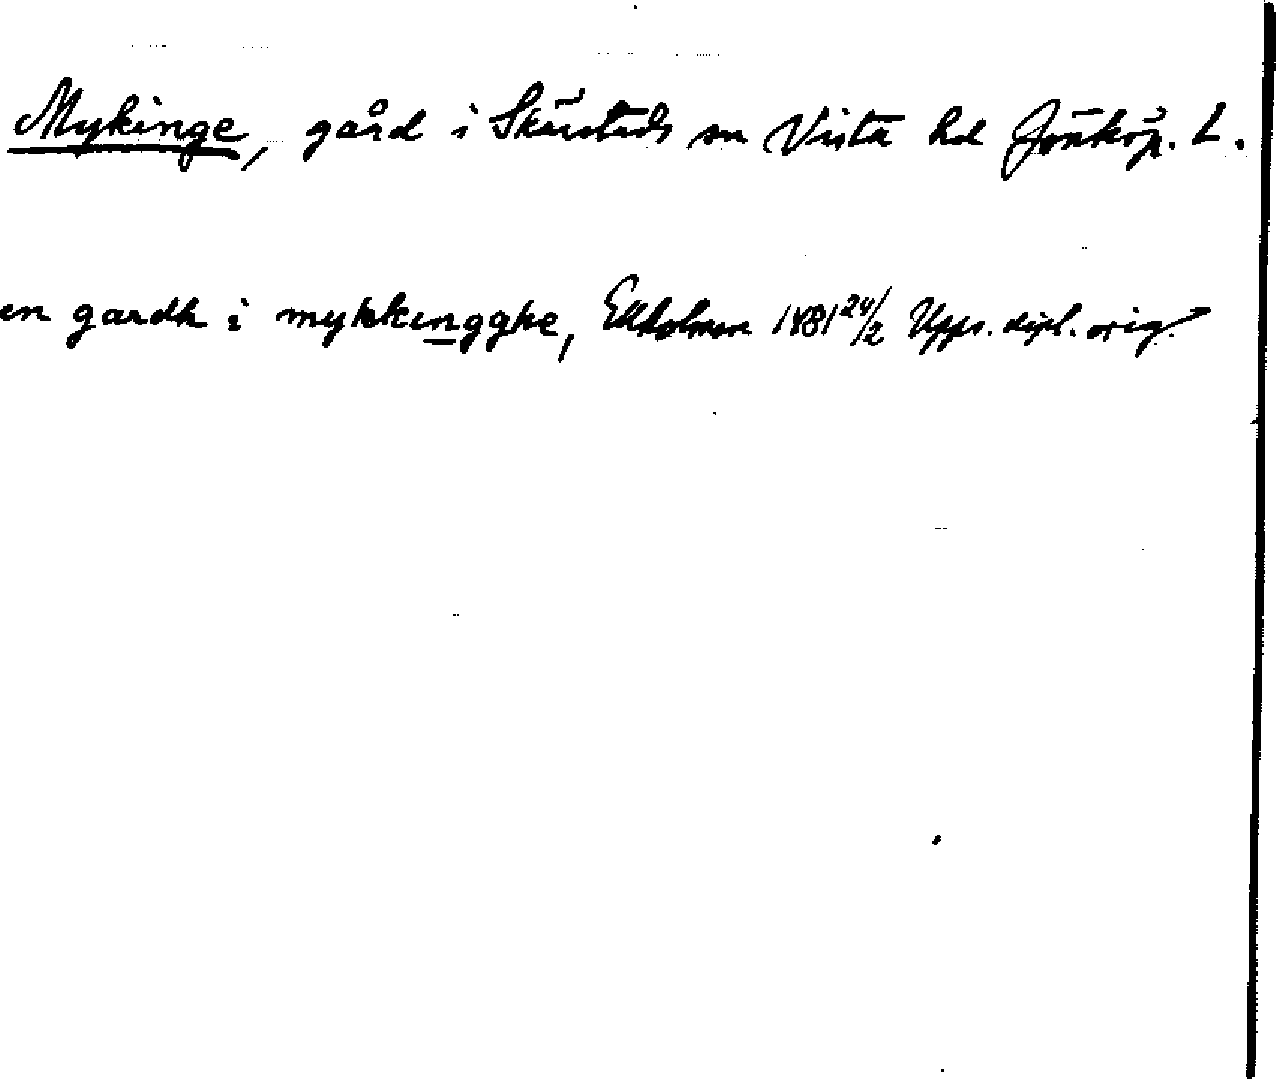 Mykinge, gård i Skärstads sn Vista hd Jönköp. L.
en gardh i mykkengghe, Ekholmen 1481 24/2 Upps. dipl. orig.